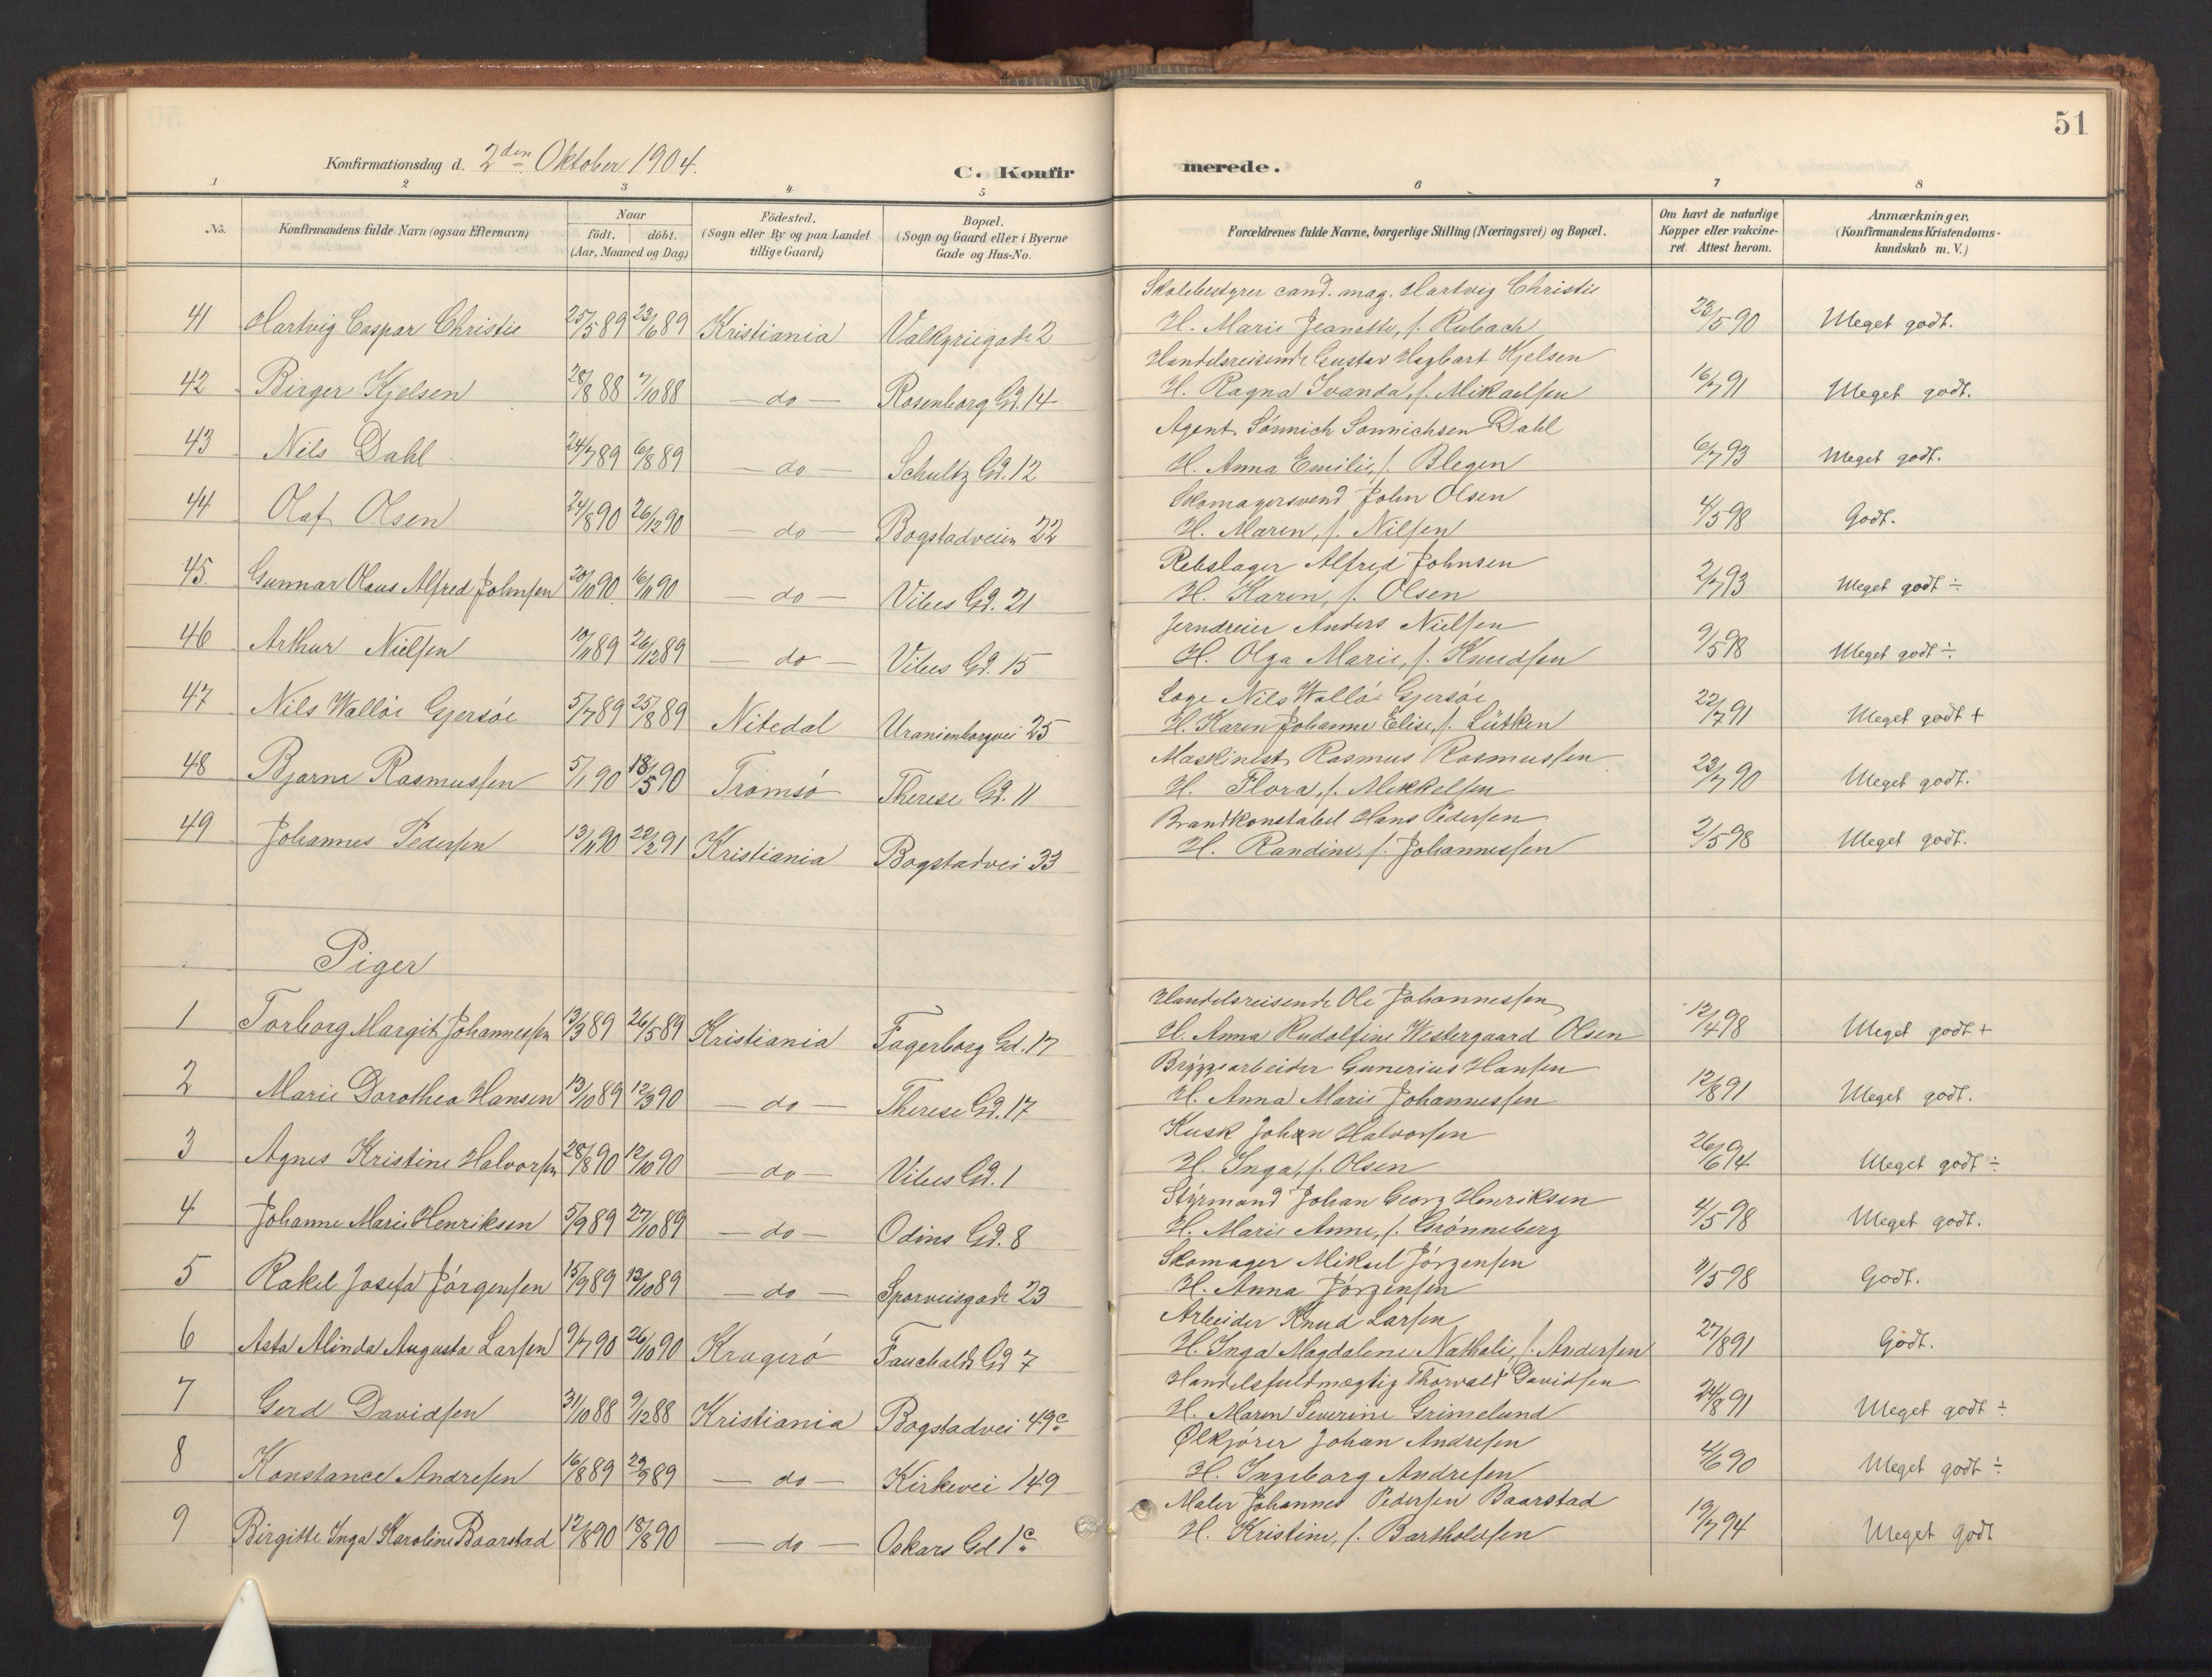 51
Konfirmationsdag d. 2den Oktober 1904.
C. Konfirmerede.
1 2 3 4 5 6 7 8
No.
Konfirmandens fulde Navn (ogsaa Efternavn)
Naar
födt. döbt.
(Aar, Maaned og Dag)
Födested.
(Sogn eller By og paa Landet
tillige Gaard)
Bopæl.
(Sogn og Gaard eller i Byerne
Gade og Hus-No.
Forældrenes fulde Navne, borgerlige Stilling (Næringsvei) og Bopæl.
Om havt de naturlige
Kopper eller vakcine-
ret. Attest herom.
Anmærkninger.
(Konfirmandens Kristendoms-
kundskab m. V.)
Skolebestyrer cand. mag. Hartvig Christie
41 Hartvig Caspar Christie 25/5 89 23/6 89 Kristiania Valkyriegade 2 H. Marie Jeanette, f. Rubach 23/5 90 Meget godt.
Handelsreisende Gustav Hagbart Kjelsen
42 Birger Kjelsen 28/8 88 7/10 88 — do — Rosenborg Gd. 14 H. Ragna Ivanda, f. Mikaelsen 16/7 91 Meget godt.
Agent Sönnich Sönnichsen Dahl
43 Nils Dahl 24/7 89 6/8 89 — do — Schultz Gd. 12 H. Anna Emilie, f. Blegen 6/7 93 Meget godt.
Skomagersvend John Olsen
44 Olaf Olsen 24/8 90 26/12 90 do — Bogstadveien 22 H. Maren, f. Nilsen 4/5 98 Godt.
Rebslager Alfred Johnsen
45. Gunnar Olaus Alfred Johnsen 20/10 90 16/11 90 — do — Vibes Gd. 21 H. Karen, f. Olsen 2/7 93 Meget godt ÷
Jerndreier Anders Nielsen
46 Arthur Nielsen 10/11 89 26/12 89 — do — Vibes Gd. 15 H. Olga Marie, f. Knudsen 9/5 98 Meget godt ÷
Læge Nils Wallöe Gjersöe
47 Nils Wallöe Gjersöe 5/7 89 25/8 89 Nitedal Uranienborgvei 25 H. Karen Johanne Elise, f. Lütken 22/7 91 Meget godt +
Maskinist Rasmus Rasmussen
48 Bjarne Rasmussen 5/1 90 18/5 90 Tromsö Therese Gd. 11 H. Flora, f. Mikkelsen 23/7 90 Meget godt.
Brandkonstabel Hans Pedersen
49 Johannes Pedersen 13/11 90 22/2 91 Kristiania Bogstadvei 33 H. Randine, f. Johannessen 2/5 98 Meget godt.
Piger
Handelsreisende Ole Johannessen
1 Torborg Margit Johannessen 13/3 89 26/5 89 Kristiania Fagerborg Gd. 17 H. Anna Rudolfine Westergaard Olsen 12/4 98 Meget godt +
Bryggearbeider Gunerius Hansen
2 Marie Dorothea Hansen 13/10 89 12/3 90 — do — Therese Gd. 17 H. Anna Marie Johannessen 12/8 91 Meget godt.
Kusk Johan Halvorsen
3 Agnes Kristine Halvorsen 28/8 90 12/10 90 — do — Vibes Gd. 1 H. Inga, f. Olsen 26/6 94 Meget godt ÷
Styrmand Johan Georg Henriksen
4 Johanne Marie Henriksen 5/9 89 27/10 89 — do — Odins Gd. 8 H. Marie Anne, f. Grönneberg 4/5 98 Meget godt.
Skomager Mikael Jörgensen
5 Rakel Josefa Jörgensen 15/9 89 13/10 89 — do — Sporveisgade 23 H. Anna Jörgensen 11/5 98 Godt.
Arbeider Knud Larsen
6 Asta Alinda Augusta Larsen 9/7 90 26/10 90 Kragerö Fauchalds Gd 7 H. Inga Magdalene Nathalie, f. Andersen 27/8 91 Godt.
Handelsfuldmægtig Thorvald Davidsen
7 Gerd Davidsen 31/10 88 9/12 88 Kristiania Bogstadvei 49c H. Maren Severine Grimelund 24/8 91 Meget godt ÷
Ølkjörer Johan Andresen
8 Konstance Andresen 16/8 89 29/9 89 — do — Kirkevei 149 H. Ingeborg Andresen 4/6 90 Meget godt ÷
Maler Johannes Pedersen Baarstad
9 Birgitte Inga Karoline Baarstad 12/8 90 18/8 90 — do — Oskars Gd 1c H. Kristine, f. Bartholdsen 19/7 94 Meget godt